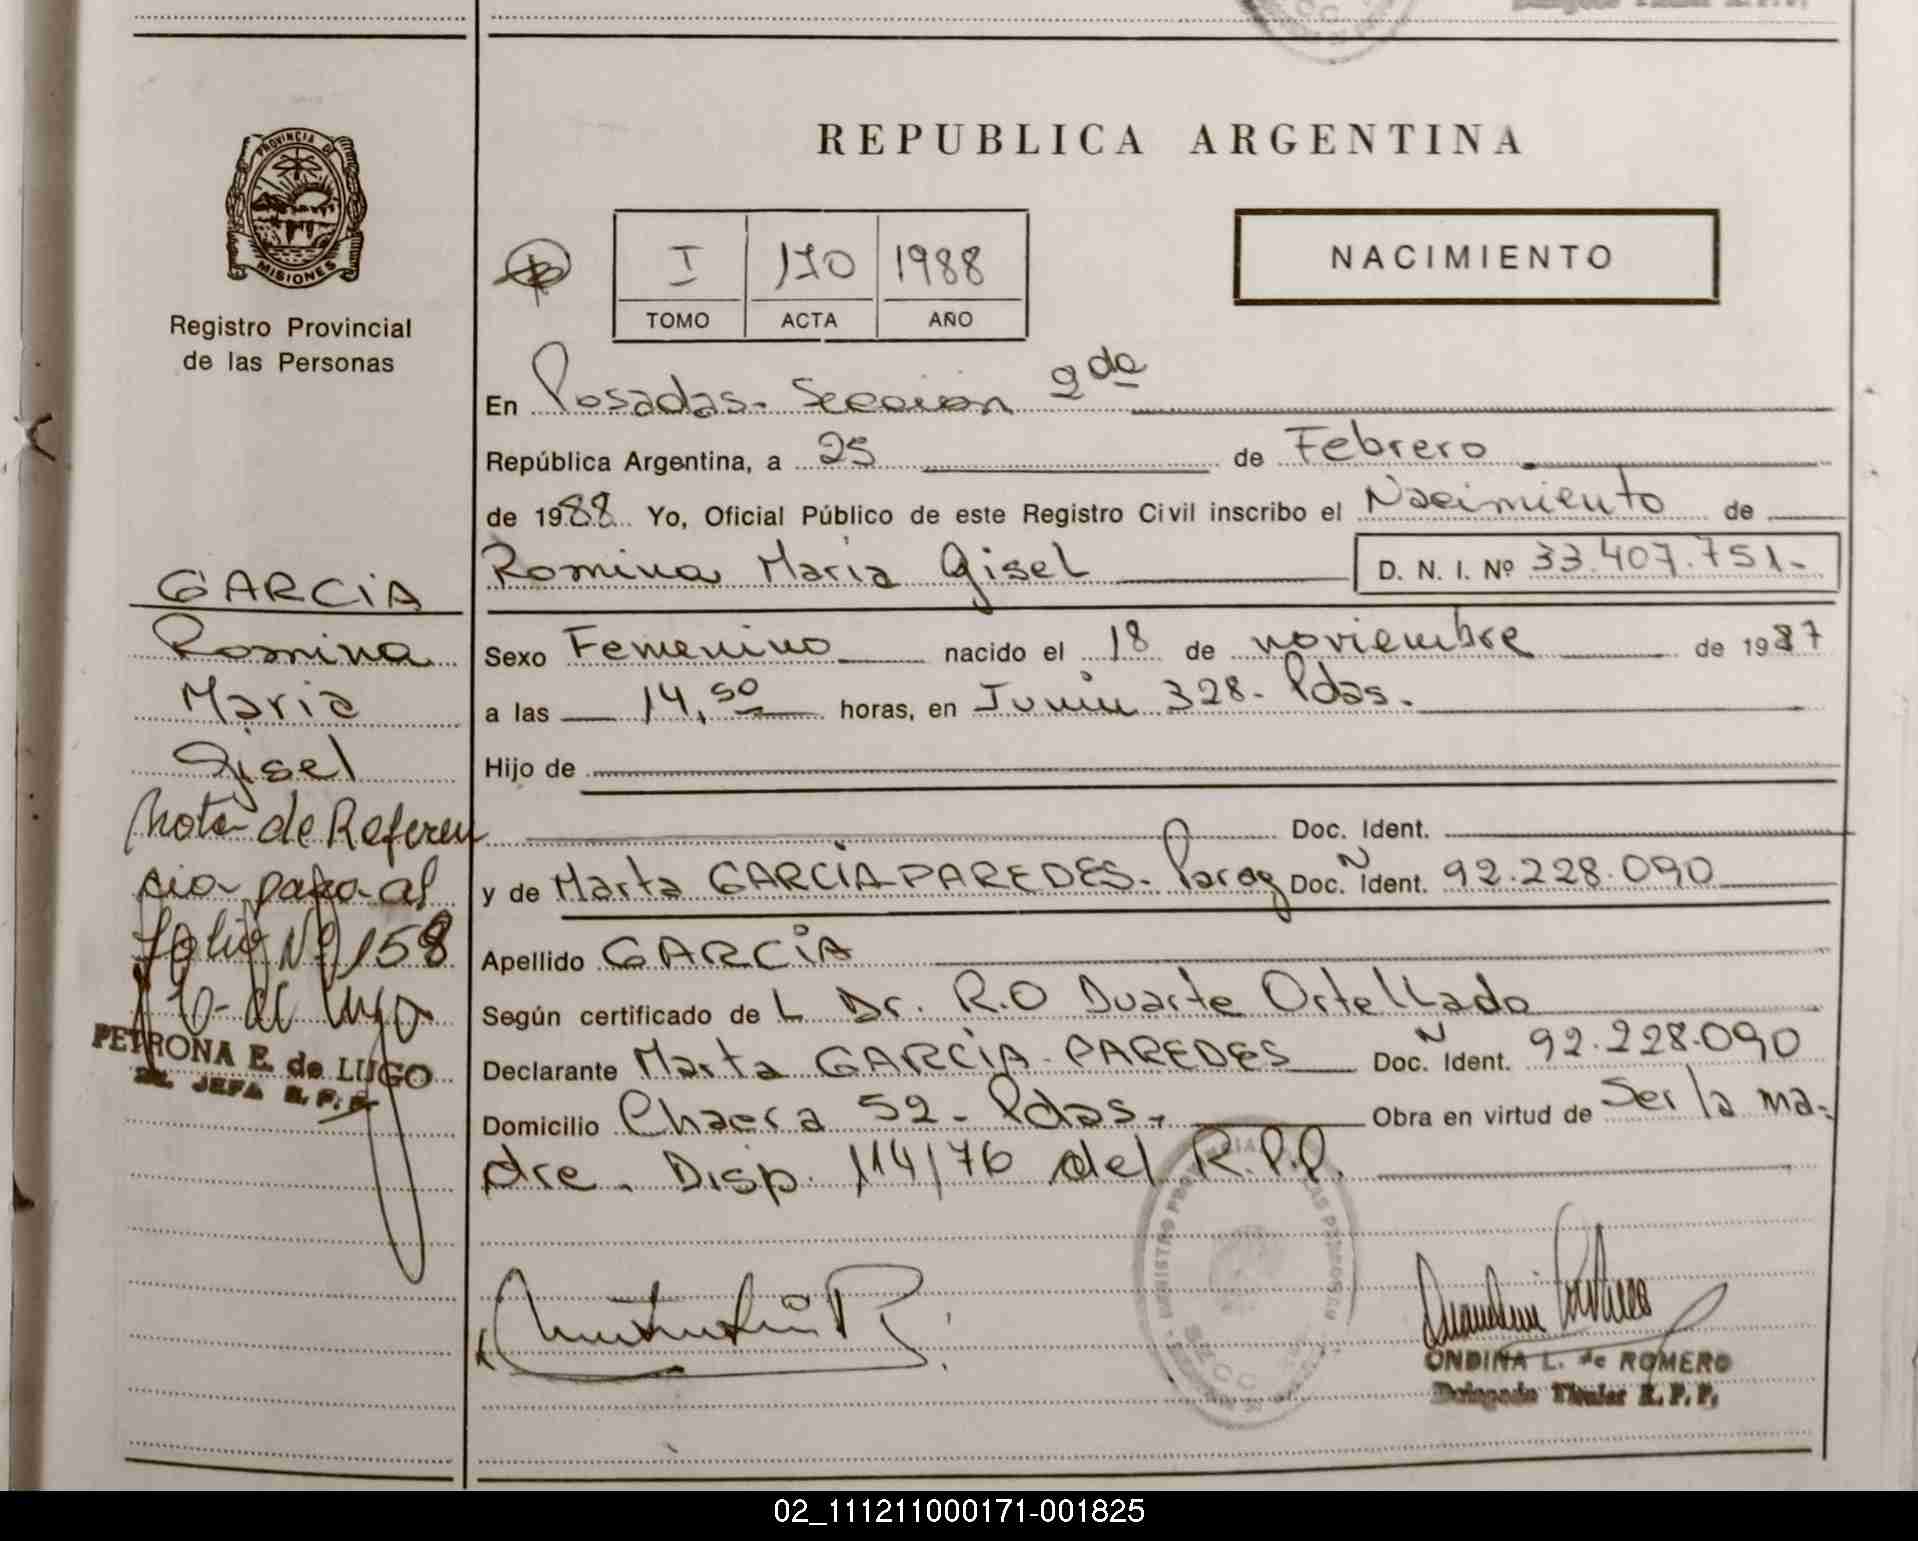 PROVINCIA DE
MISIONES
Registro Provincial
de las Personas
REPUBLICA ARGENTINA
I 170 1988
TOMO ACTA AÑO
NACIMIENTO
En Posadas. Seccion 2da
República Argentina, a 25 de Febrero
de 1988 Yo, Oficial Público de este Registro Civil inscribo el Nacimiento de
Romina Maria Gisel D. N. I. Nº 33.407.751.-
Sexo Femenino nacido el 18 de noviembre de 1987
a las 14,50 horas, en Junin 328- Pdas.
Hijo de
Doc. Ident.
y de Marta GARCIA PAREDES. Parag Doc. N Ident. 92.228.090
Apellido GARCIA
Según certificado de L Dr. R.O Duarte Ortellado
Declarante Marta GARCIA-PAREDES Doc. N Ident. 92.228.090
Domicilio Chacra 52- Pdas. Obra en virtud de Ser la ma-
dre. Disp. 114/76 del R.P.P.
ONDINA L. de ROMERO
Delegada Titular R.P.P.
GARCIA
Romina
Maria
Gisel
Nota de Referen
cia pasa al
folio Nº 158
PETRONA E. de LUGO
JEFA R.P.P.
02_111211000171-001825